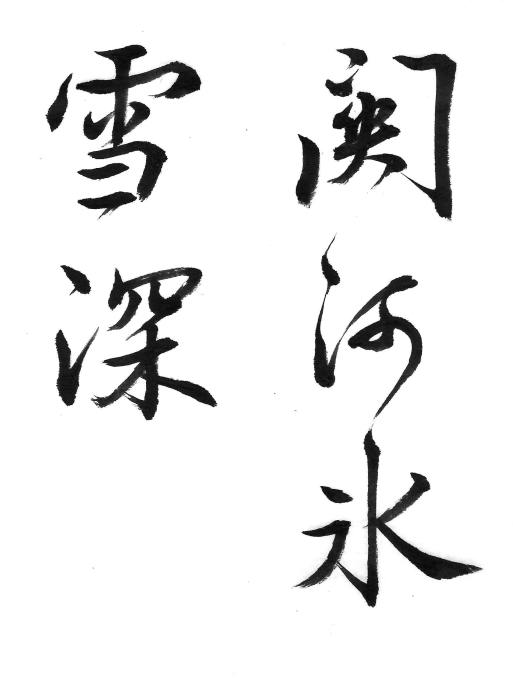 関河氷
雪深